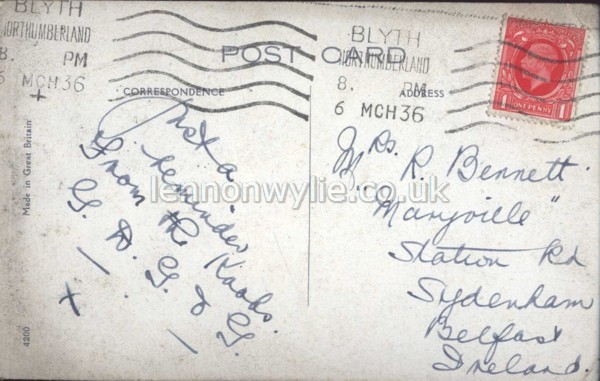 BLYTH
NORTHUMBERLAND
8. PM
6 MCH 36
BLYTH
NORTHUMBERLAND
8. PM
6 MCH 36
POST CARD
CORRESPONDENCE
ADDRESS
ONE PENNY
1
Just a
reminder
From the
G. D. G. & G.
Mrs. R. Bennett
"Maryville"
Station Rd
Sydenham
Belfast
Ireland.
lennonwylie.co.uk
Made in Great Britain
4200